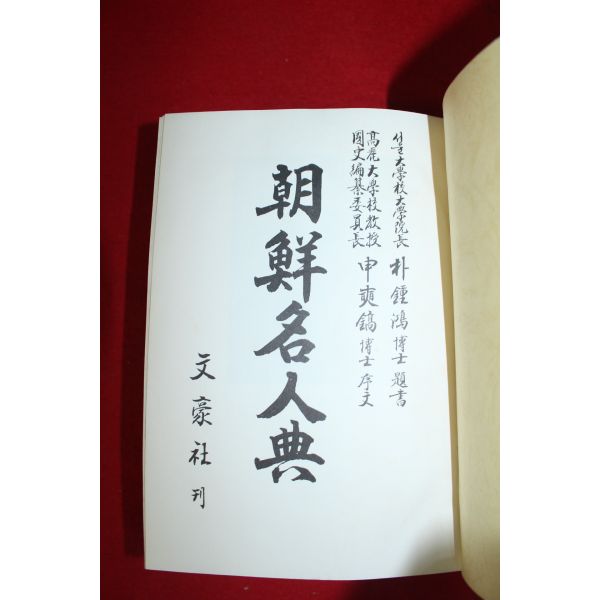 서울大學校大學院長 朴鍾鴻 博士 題書
高麗大學校敎授
國史編纂委員長 申奭鎬 博士 序文
朝鮮名人典
文豪社 刊